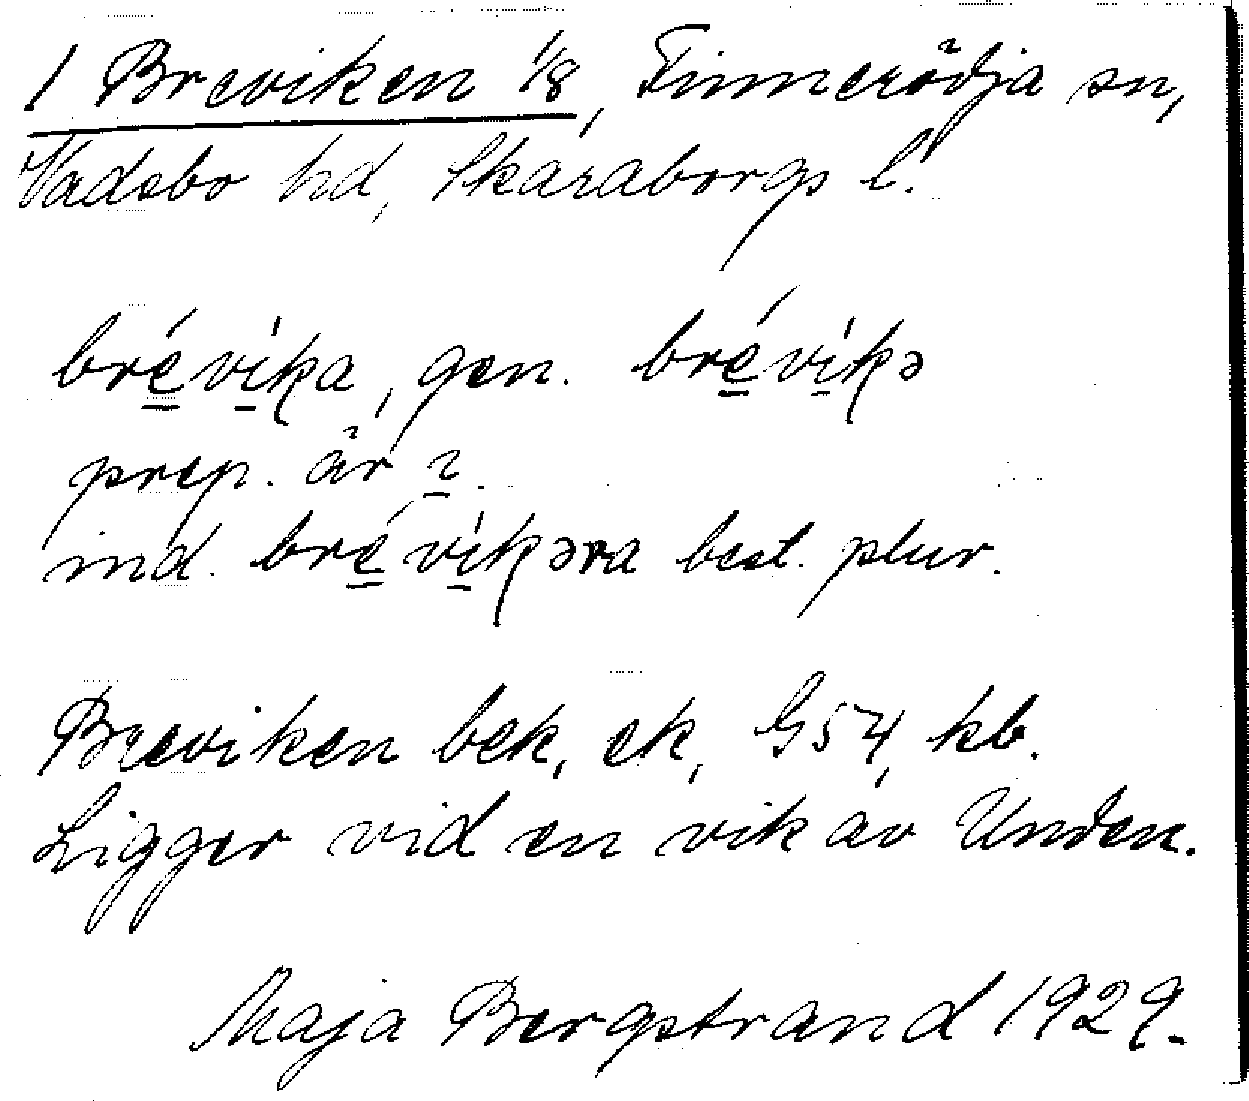 1 Breviken 1/8, Finnerödja sn,
Vadsbo hd, Skaraborgs l.
bré̱ví̱ka, gen. bré̱ví̱kə
prep. är i̱.
ind. bré̱ví̱kəra best. plur.
Breviken bek, ek, G54, kb.
Ligger vid en vik av Unden.
Maja Bergstrand 1929.